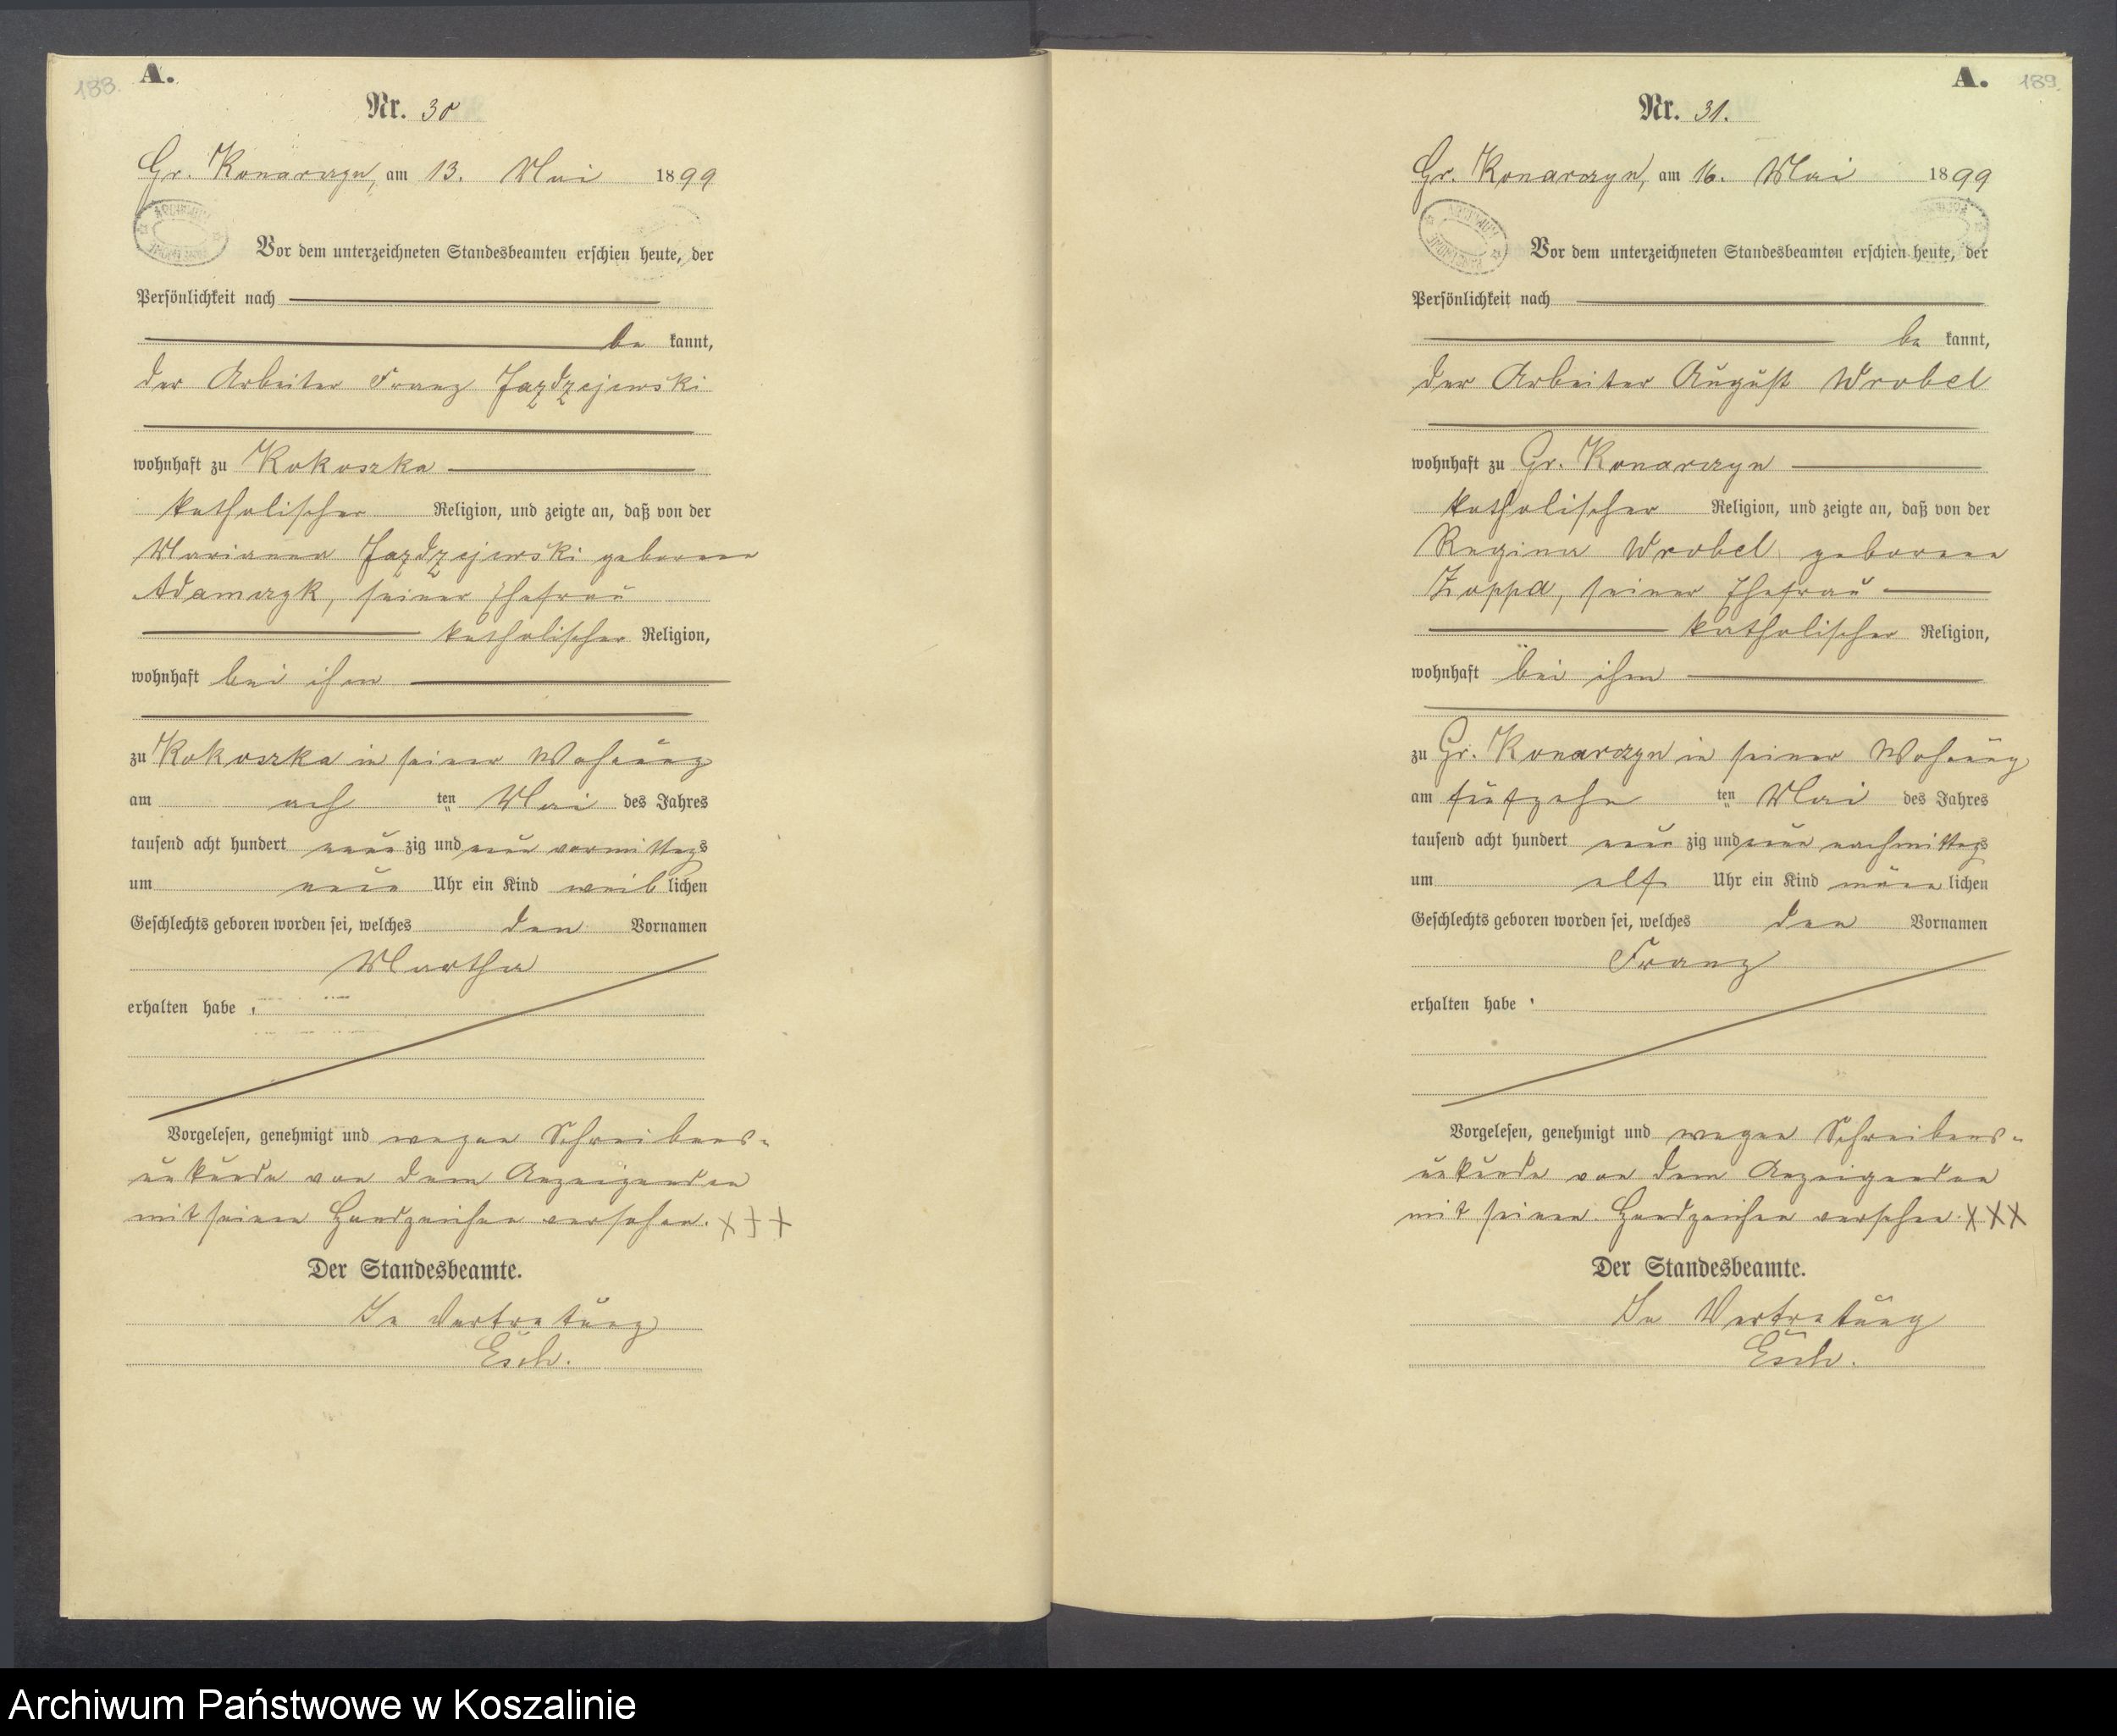 188.
A.
Nr. 30
Gr. Konarczyn, am 13. Mai 1899
Vor dem unterzeichneten Standesbeamten erschien heute, der
Persönlichkeit nach
be kannt,
der Arbeiter Franz Jazdzejewski
wohnhaft zu Kokoszka
katholischer Religion, und zeigte an, daß von der
Marianna Jazdzejewski geborene
Adamczyk, seiner Ehefrau
katholischer Religion,
wohnhaft bei ihm
zu Kokoszka in seiner Wohnung
am ach ten Mai des Jahres
tausend acht hundert neun zig und neun vormittags
um neun Uhr ein Kind weib lichen
Geschlechts geboren worden sei, welches den Vornamen
Martha
erhalten habe.
Vorgelesen, genehmigt und wegen Schreibens-
unkunde von dem Anzeigenden
mit seinem Handzeichen versehen. XXX
Der Standesbeamte.
In Vertretung
Esch.
A.
189.
Nr. 31.
Gr. Konarczyn, am 16. Mai 1899
Vor dem unterzeichneten Standesbeamten erschien heute, der
Persönlichkeit nach
be kannt,
der Arbeiter August Wrobel
wohnhaft zu Gr. Konarczyn
katholischer Religion, und zeigte an, daß von der
Regina Wrobel geborene
Zoppa, seiner Ehefrau
katholischer Religion,
wohnhaft bei ihm
zu Gr. Konarczyn in seiner Wohnung
am fünfzehn ten Mai des Jahres
tausend acht hundert neun zig und neun nachmittags
um elf Uhr ein Kind männ lichen
Geschlechts geboren worden sei, welches den Vornamen
Franz
erhalten habe.
Vorgelesen, genehmigt und wegen Schreibens-
unkunde von dem Anzeigenden
mit seinem Handzeichen versehen. XXX
Der Standesbeamte.
In Vertretung
Esch.
Archiwum Państwowe w Koszalinie